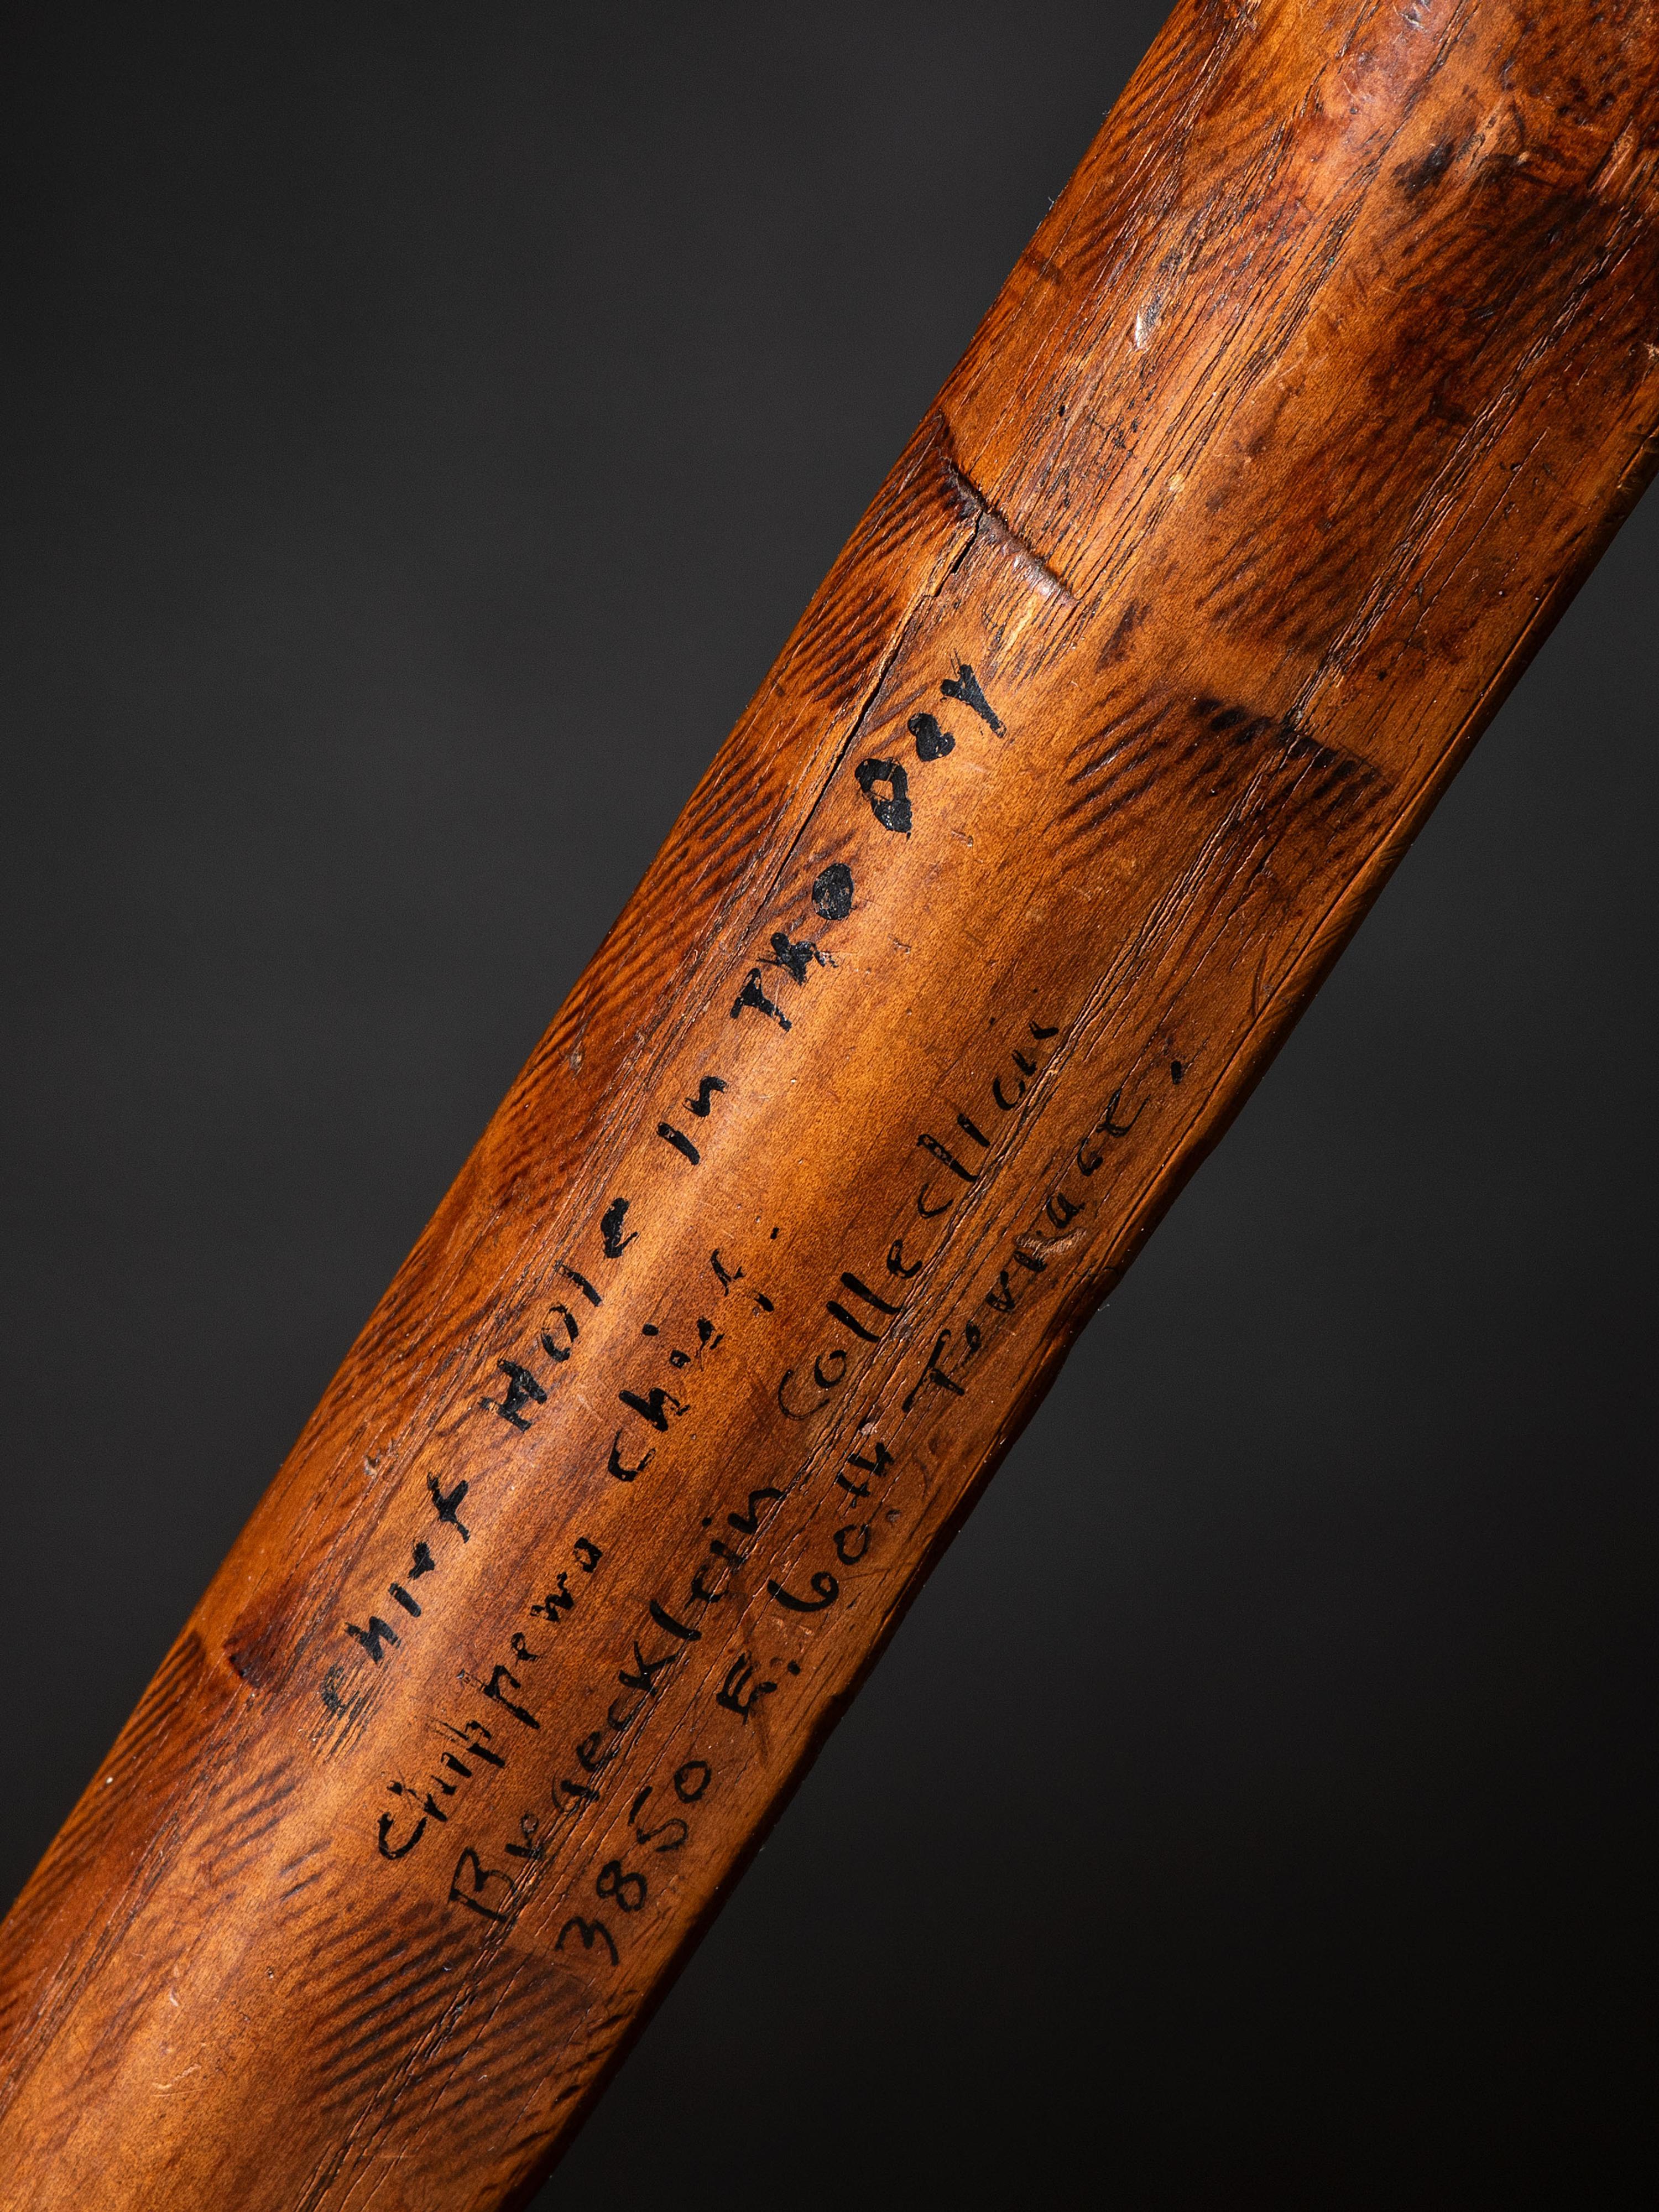 Chief Hole In The Day
Chippewa Chief.
Bregecklein Collection
3850 E. 60th Terrace.